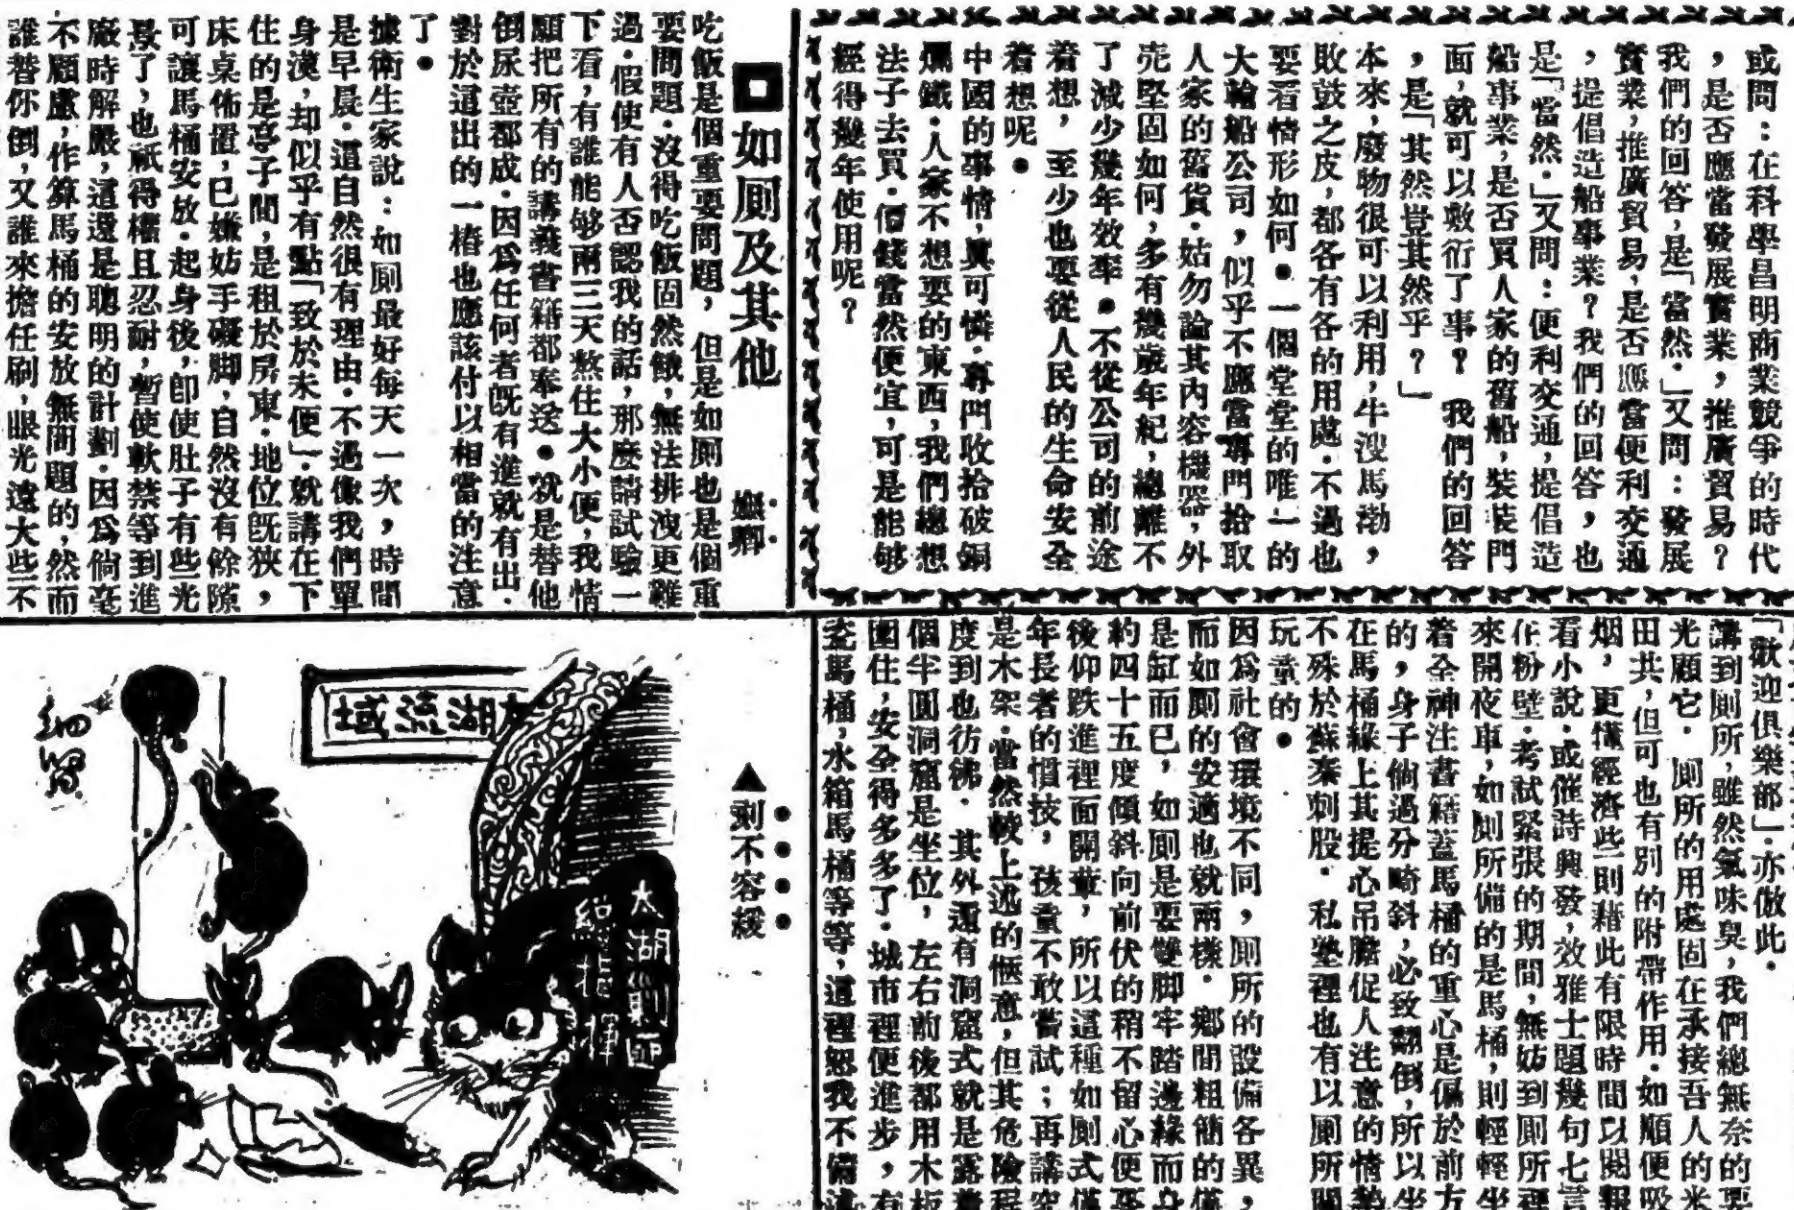 或問：在科學昌明商業競爭的時代
，是否應當發展實業，推廣貿易？
我們的回答，是「當然．」又問：發展
實業，推廣貿易，是否應當便利交通
，提倡造船事業？我們的回答，也
是「當然．」又問：便利交通，提倡造
船事業，是否買人家的舊船，裝裝門
面，就可以敷衍了事？　我們的回答
，是「其然豈其然乎？」
本來，廢物很可以利用，牛溲馬渤，
敗鼓之皮，都各有各的用處．不過也
要看情形如何．一個堂堂的唯一的
大輪船公司，似乎不應當專門拾取
人家的舊貨．姑勿論其內容機器，外
壳堅固如何，多有幾歲年紀，總離不
了減少幾年效率．不從公司的前途
着想，至少也要從人民的生命安全
着想呢．
中國的事情，眞可憐．專門收拾破銅
爛鐵．人家不想要的東西，我們總想
法子去買．價錢當然便宜，可是能够
經得幾年使用呢？
如厠及其他
吃飯是個重要問題，但是如厠也是個重
要問題．沒得吃飯固然餓，無法排洩更難
過．假使有人否認我的話，那麼請試驗一
下看，有誰能够兩三天熬住大小便，我情
願把所有的講義書籍都奉送．就是替他
倒尿壺都成．因爲任何者旣有進就有出．
對於這出的一樁也應該付以相當的注意
了．
據衛生家說：如厠最好每天一次，時間
是早晨．這自然很有理由．不過像我們單
身漢，却似乎有點「致於未便」．就講在下
住的是亭子間，是租於房東．地位旣狹，
床桌佈置，已嫌妨手礙脚，自然沒有餘隙
可讓馬桶安放．起身後，卽使肚子有些光
景了，也祇得權且忍耐，暫使軟禁等到進
廠時解嚴，這還是聰明的計劃．因爲倘毫
不顧慮，作算馬桶的安放無問題的，然而
誰替你倒，又誰來擔任刷，眼光遠大些不
「歡迎俱樂部」．亦倣此．
講到厠所，雖然氣味臭，我們總無奈的要
光顧它．厠所的用處固在承接吾人的米
田共，但可也有別的附帶作用．如順便吸
烟，更懂經濟些一則藉此有限時間以閱報
看小說．或催詩興發，效雅士題幾句七言
仵粉壁．考試緊張的期間，無妨到厠所裡
來開夜車，如厠所備的是馬桶，則輕輕坐
着全神注書籍蓋馬桶的重心是偏於前方
的，身子倘過分畸斜，必致翻倒，所以坐
在馬桶緣上其提心吊膽促人注意的情勢
不殊於蘇秦刺股．私塾裡也有以厠所關
玩童的．
因爲社會環境不同，厠所的設備各異，
而如厠的安適也就兩樣．鄉間粗簡的僅
是缸而已，如厠是要雙脚牢踏邊緣而身
約四十五度傾斜向前伏的稍不留心便要
後仰跌進裡面開葷，所以這種如厠式僅
年長者的慣技，孩童不敢嘗試；再講究
是木架．當然較上述的愜意，但其危險程
度到也彷彿．其外還有洞窟式就是露着
個半圓洞窟是坐位，左右前後都用木板
圍住，安全得多多了．城市裡便進步，有
瓷馬桶，水箱馬桶等等，這裡恕我不備述
▲刻不容緩
湖流域
太湖剿匪
總指揮